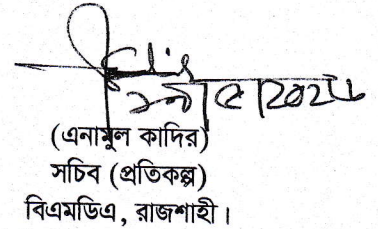 (এনামুল কাদির)
সচিব (প্রতিকল্প)
বিএমডিএ, রাজশাহী।